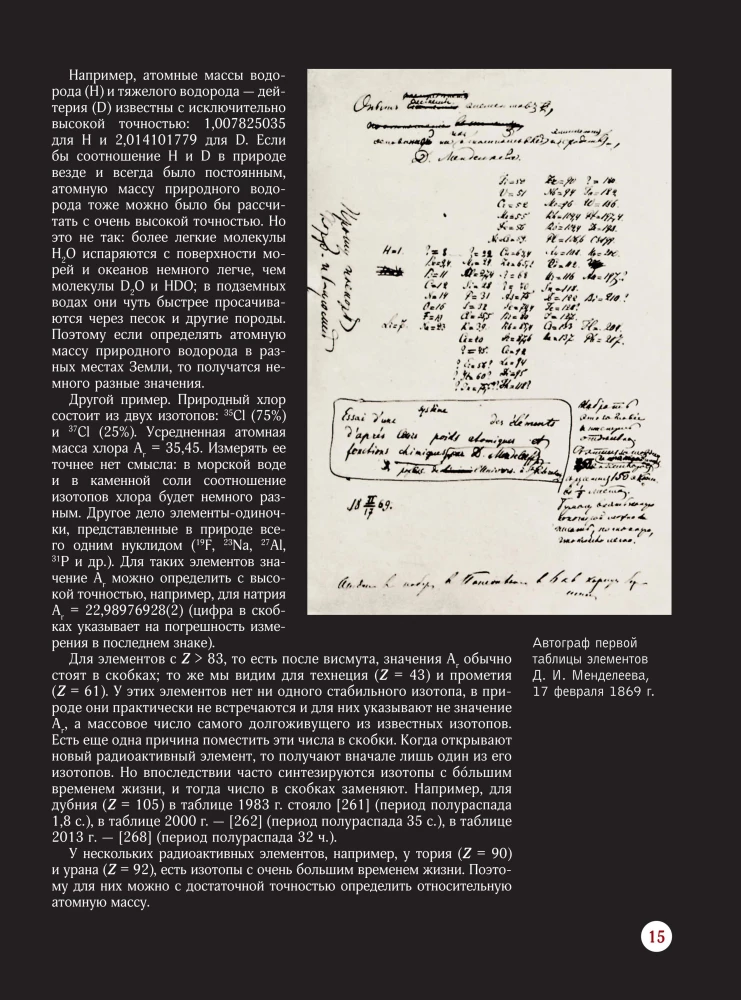 Например, атомные массы водо-
рода (H) и тяжелого водорода — дей-
терия (D) известны с исключительно
высокой точностью: 1,007825035
для H и 2,014101779 для D. Если
бы соотношение H и D в природе
везде и всегда было постоянным,
атомную массу природного водо-
рода тоже можно было бы рассчи-
тать с очень высокой точностью. Но
это не так: более легкие молекулы
H₂O испаряются с поверхности мо-
рей и океанов немного легче, чем
молекулы D₂O и HDO; в подземных
водах они чуть быстрее просачива-
ются через песок и другие породы.
Поэтому если определять атомную
массу природного водорода в раз-
ных местах Земли, то получатся не-
много разные значения.
Другой пример. Природный хлор
состоит из двух изотопов: ³⁵Cl (75%)
и ³⁷Cl (25%). Усредненная атомная
масса хлора Aᵣ = 35,45. Измерять ее
точнее нет смысла: в морской воде
и в каменной соли соотношение
изотопов хлора будет немного раз-
ным. Другое дело элементы-одиноч-
ки, представленные в природе все-
го одним нуклидом (¹⁹F, ²³Na, ²⁷Al,
³¹P и др.). Для таких элементов зна-
чение Aᵣ можно определить с высо-
кой точностью, например, для натрия
Aᵣ = 22,98976928(2) (цифра в скоб-
ках указывает на погрешность изме-
рения в последнем знаке).
Для элементов с Z > 83, то есть после висмута, значения Aᵣ обычно
стоят в скобках; то же мы видим для технеция (Z = 43) и прометия
(Z = 61). У этих элементов нет ни одного стабильного изотопа, в при-
роде они практически не встречаются и для них указывают не значение
Aᵣ, а массовое число самого долгоживущего из известных изотопов.
Есть еще одна причина поместить эти числа в скобки. Когда открывают
новый радиоактивный элемент, то получают вначале лишь один из его
изотопов. Но впоследствии часто синтезируются изотопы с бо́льшим
временем жизни, и тогда число в скобках заменяют. Например, для
дубния (Z = 105) в таблице 1983 г. стояло [261] (период полураспада
1,8 с.), в таблице 2000 г. — [262] (период полураспада 35 с.), в таблице
2013 г. — [268] (период полураспада 32 ч.).
У нескольких радиоактивных элементов, например, у тория (Z = 90)
и урана (Z = 92), есть изотопы с очень большим временем жизни. Поэто-
му для них можно с достаточной точностью определить относительную
атомную массу.
Опыт системы элементовъ,
Д. Менделѣевъ.
H=1.
Essai d'une système des éléments
d'après leurs poids atomiques et
fonctions chimiques par D. Mendeleeff
18 II/17 69.
Автограф первой
таблицы элементов
Д. И. Менделеева,
17 февраля 1869 г.
15